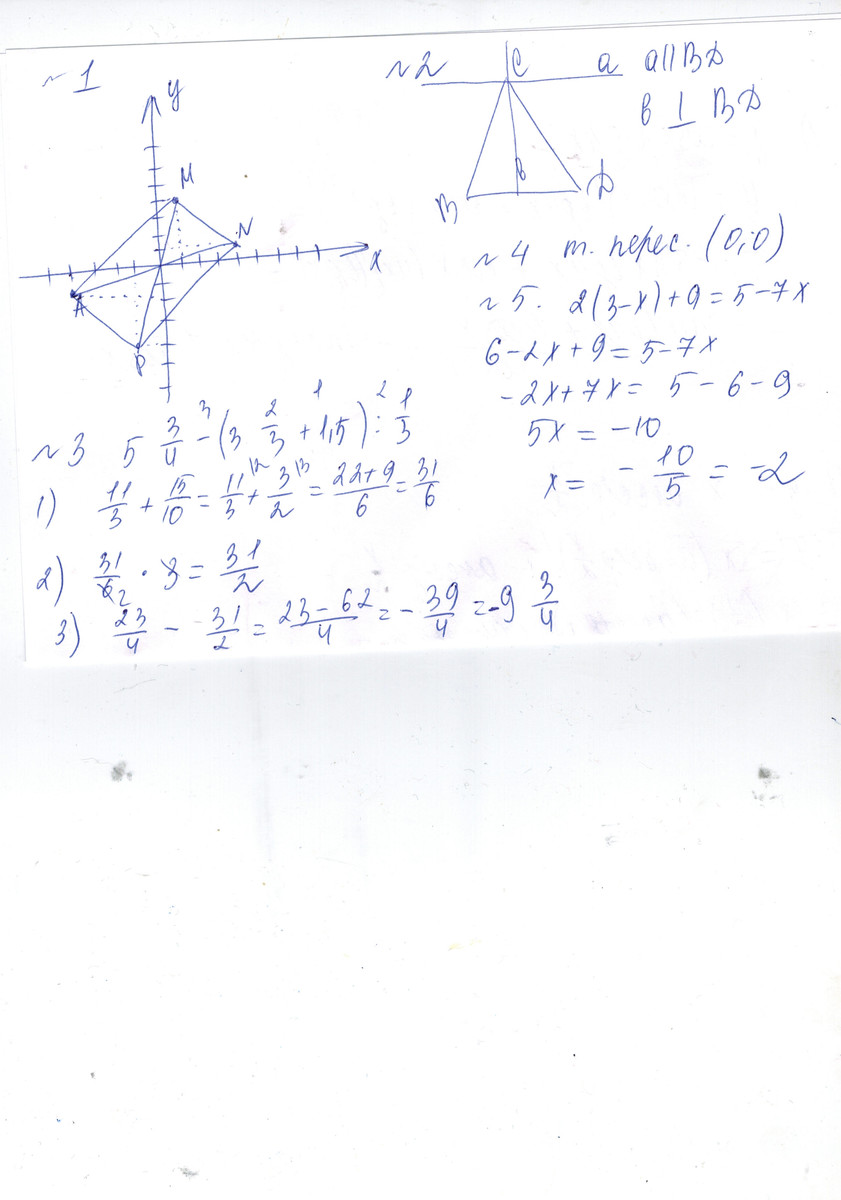 ~ 1
y
M
N
x
A
P
~ 2
C
a
a || BD
в ⊥ BD
в
B
D
~ 4 т. перес. (0; 0)
~ 5. 2(3-x)+9=5-7x
6-2x+9=5-7x
-2x+7x= 5-6-9
5x = -10
x= -10/5 = -2
~ 3 5 3/4 - (3 2/3 + 1,5) : 1/3
3 1 2
1) 11/3 + 15/10 = 11/3 + 3/2 = (22+9)/6 = 31/6
2) 31/6 · 3 = 31/2
3) 23/4 - 31/2 = (23-62)/4 = - 39/4 = -9 3/4